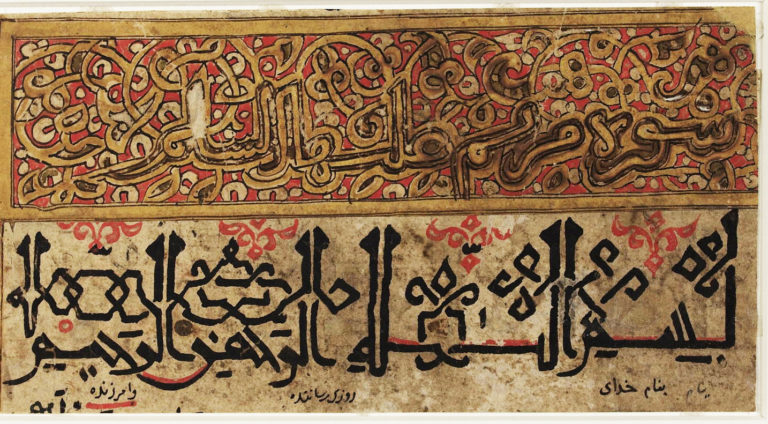 سورة مريم عليها السلم
بسم الله الرحمن الرحيم
بنام بنام خدای روزی رساننده وامرزنده